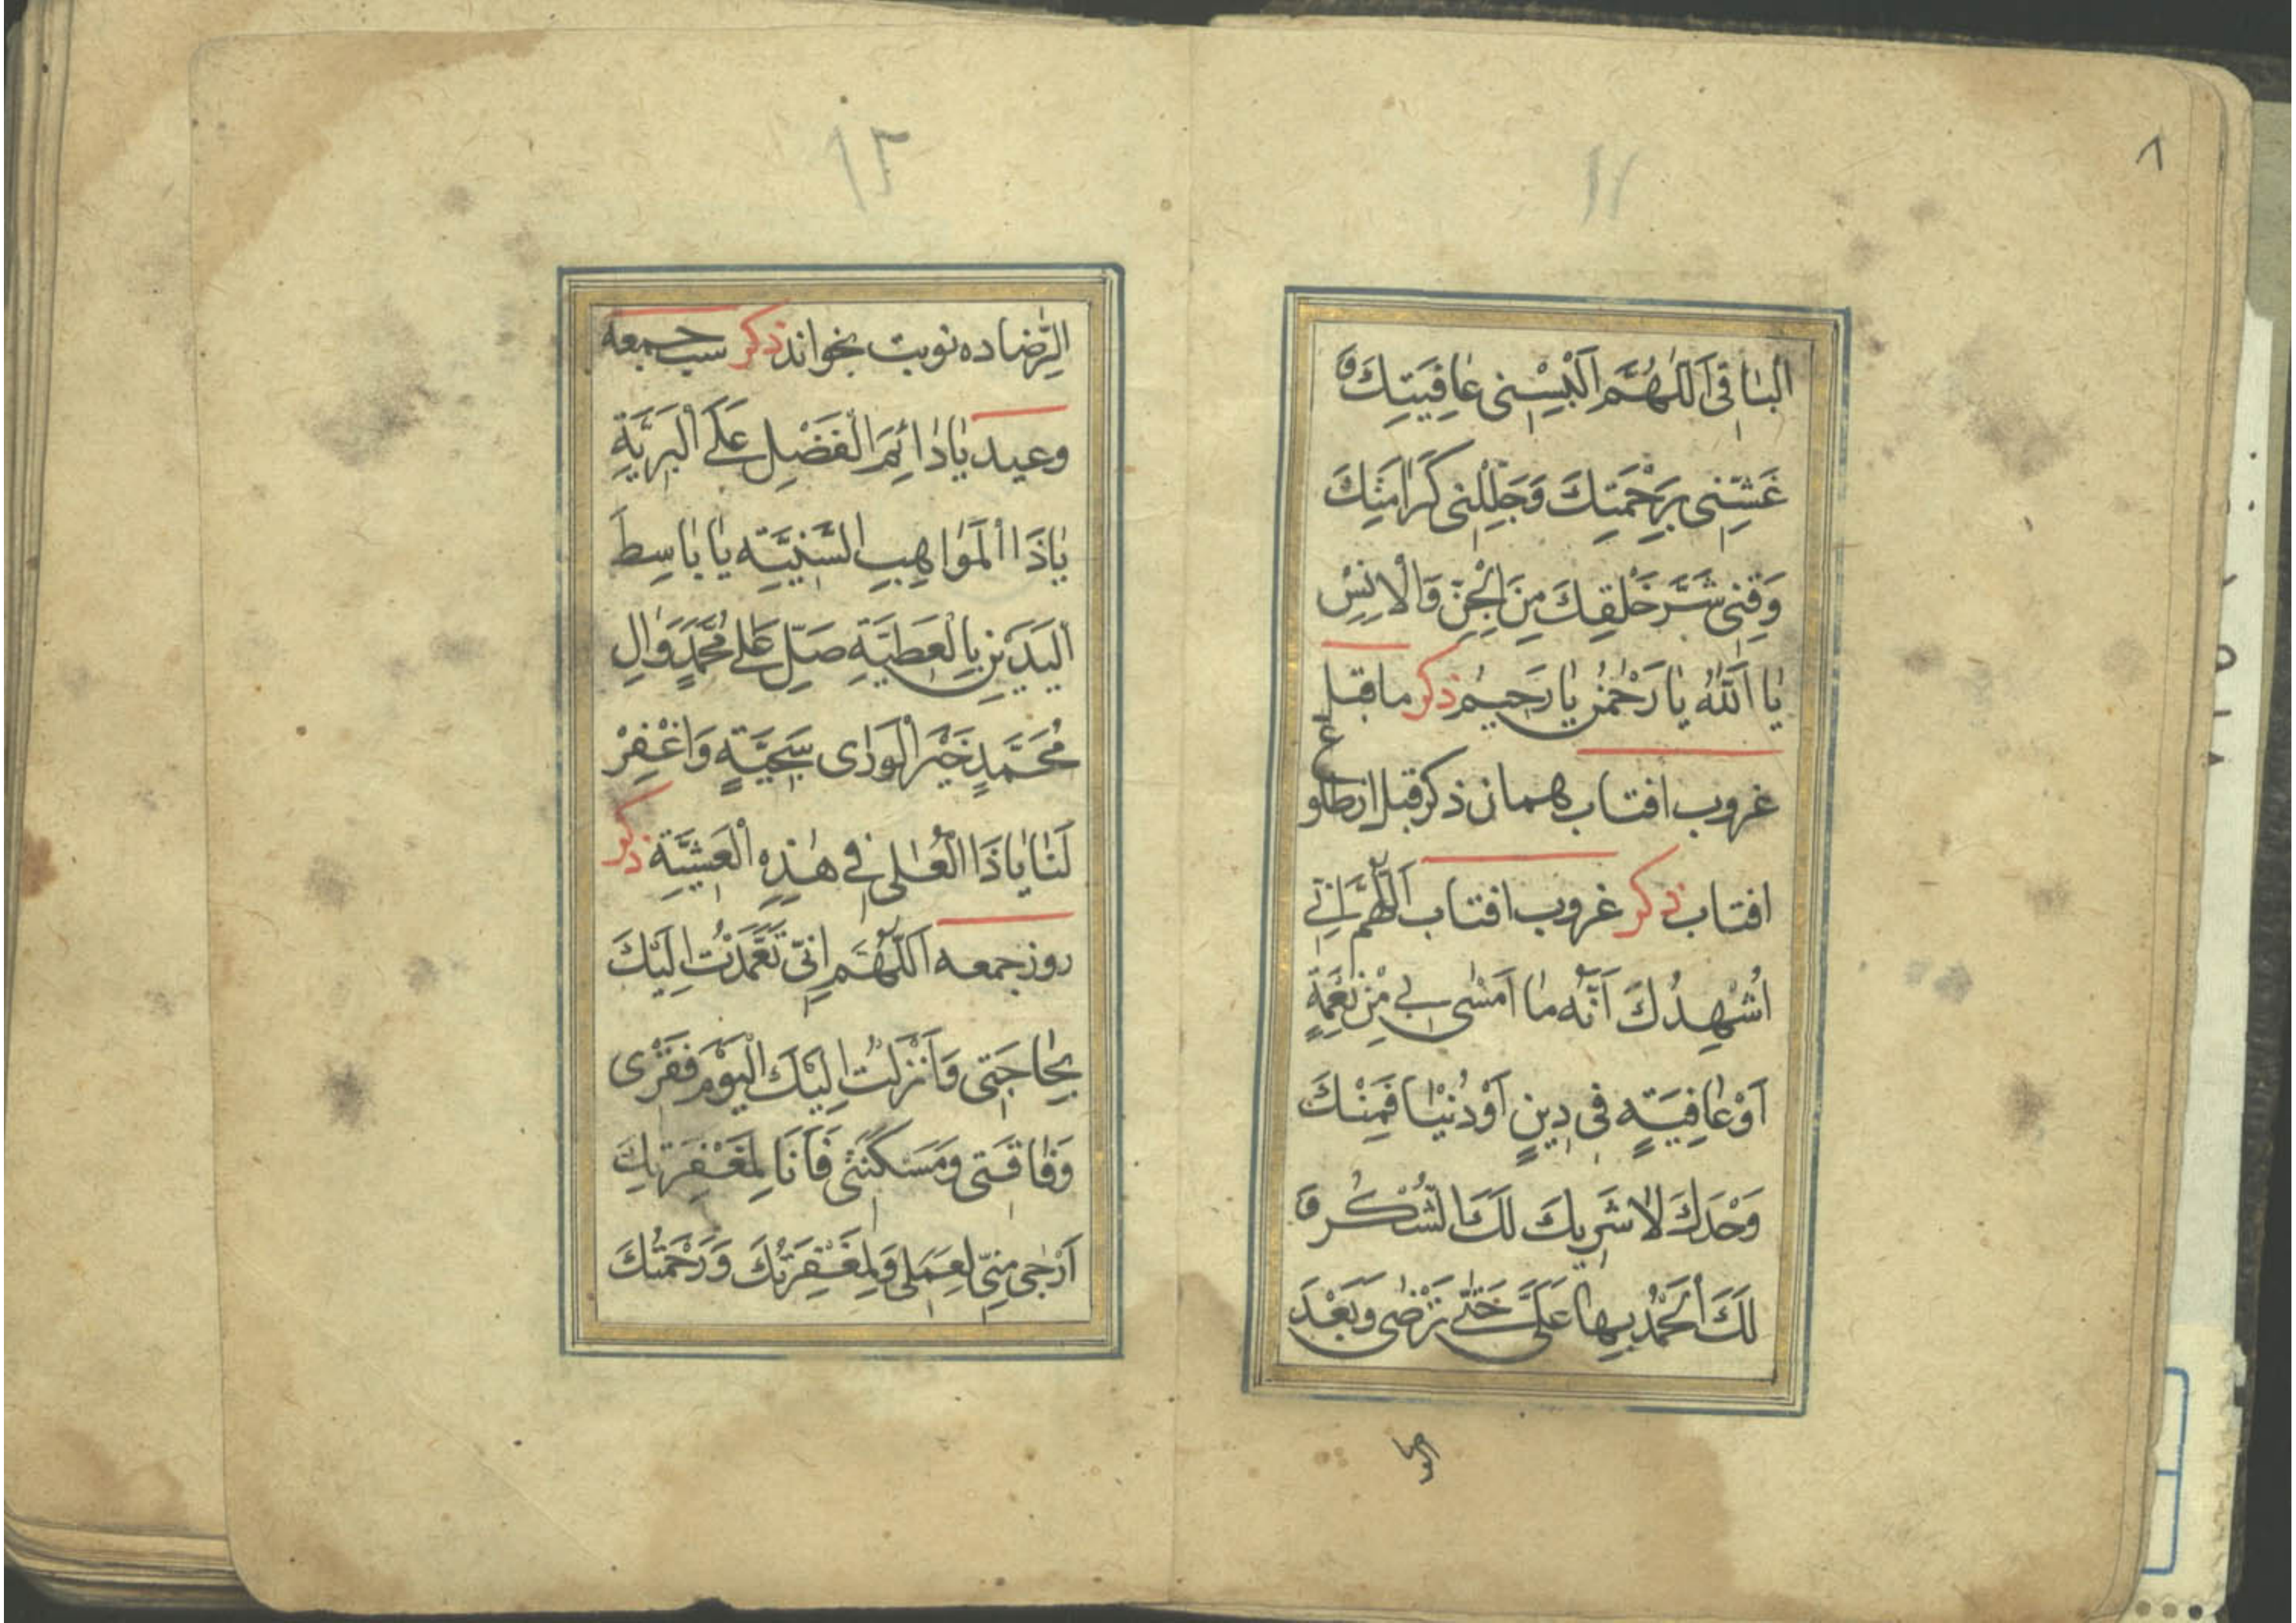 ٨
١١
الْبٰاقی اَللّٰهُمَّ اَلْبِسْنِی عٰافِیَتِكَ وَ
غَشِّنِی بِرَحْمَتِكَ وَجَلِّلْنِی كَرٰامَتِكَ
وَقِنِی شَرَّ خَلْقِكَ مِنَ الْجِنِّ وَالْاِنْسِ
یٰا اَللّٰهُ یٰا رَحْمٰنُ یٰا رَحِیمُ ذکر ما قبل
غروب افتاب همان ذکر قبل از طلوع
افتاب ذکر غروب افتاب اَللّٰهُمَّ اِنِّی
اُشْهِدُكَ اَنَّهُ مٰا اَمْسٰی بِی مِنْ نِعْمَةٍ
اَوْ عٰافِیَةٍ فِی دِینٍ اَوْ دُنْیٰا فَمِنْكَ
وَحْدَكَ لٰا شَرِیكَ لَكَ لَكَ الشُّكْرُ وَ
لَكَ الْحَمْدُ بِهٰا عَلَیَّ حَتّٰی تَرْضٰی وَبَعْدَ
الرضا
١٢
الرِّضا ده نوبت بخواند ذکر شب جمعه
وعید یٰا دٰائِمَ الْفَضْلِ عَلَی الْبَرِیَّةِ
یٰا ذَا الْمَوٰاهِبِ السَّنِیَّةِ یٰا بٰاسِطَ
الْیَدَیْنِ بِالْعَطِیَّةِ صَلِّ عَلٰی مُحَمَّدٍ وَاٰلِ
مُحَمَّدٍ خَیْرِ الْوَرٰی سَجِیَّةٍ وَاغْفِرْ
لَنٰا یٰا ذَا الْعُلٰی فِی هٰذِهِ الْعَشِیَّةِ ذکر
روز جمعه اَللّٰهُمَّ اِنِّی تَعَمَّدْتُ اِلَیْكَ
بِحٰاجَتِی وَاَنْزَلْتُ اِلَیْكَ الْیَوْمَ فَقْرِی
وَفٰاقَتِی وَمَسْكَنَتِی فَاَنَا لِمَغْفِرَتِكَ
اَرْجٰی مِنِّی لِعَمَلِی وَلِمَغْفِرَتُكَ وَرَحْمَتُكَ